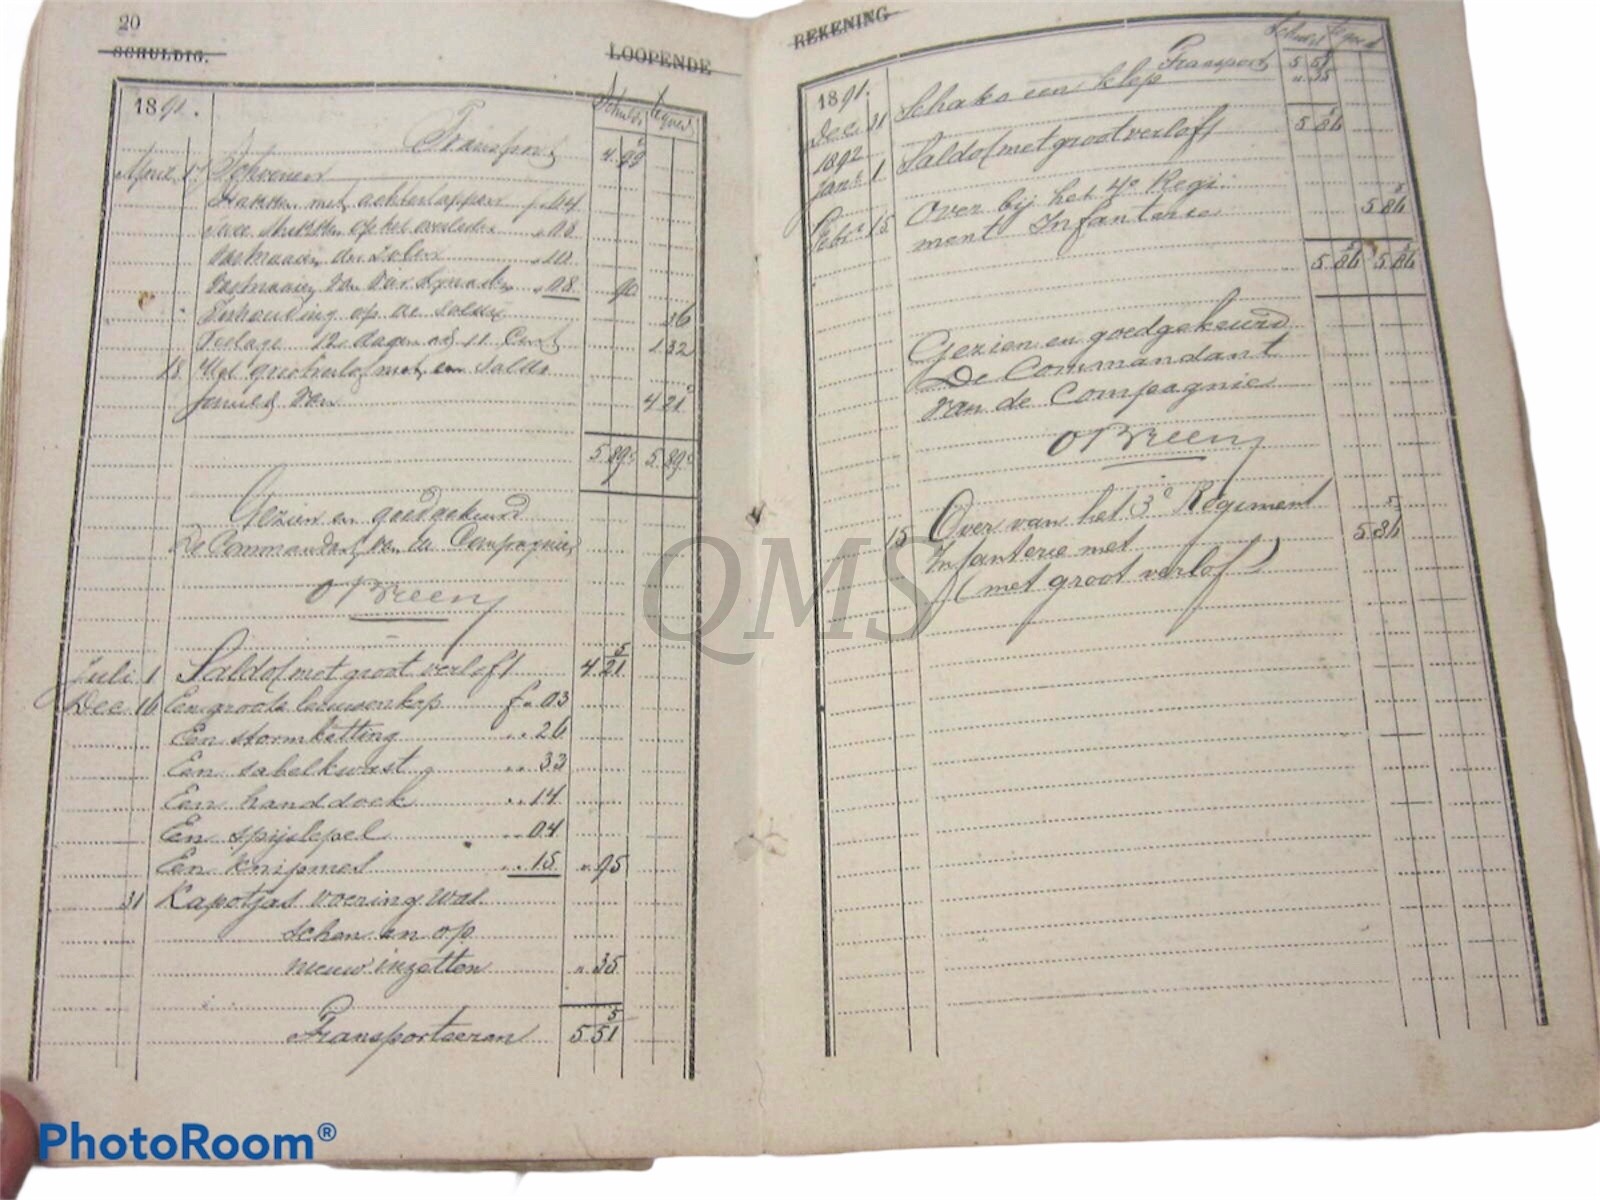 20
SCHULDIG. LOOPENDE
1891. Schuld Tegoed
Transport 4 99
April 17 Schoenen
Hakken met achterlappen f. 64
Twee stukken op het overleder " 08
Vastnaaien der zolen " 10
Vastnaaien van vier " 08 90
Inhouding op de soldij 36
Toelage 12 dagen ad 11 Cent 1 32
18 Met groot verlof met een Saldo
schuld van 4 21⁵
5 89⁵ 5 89⁵
Gezien en goedgekeurd
De Commandant van de Compagnie
OBreen
Juli 1 Saldo (met groot verlof) 4 21⁵
Dec 16 Een groote leeuwenkop f " 03
Een stormketting " " 26
Een sabelkwast " " 33
Een handdoek " " 14
Een spijslepel " " 04
Een knipmes " " 15 " 95
31 Kapotjas voering was
schen en op
nieuw inzetten " 35
Transporteeren 5 51⁵
REKENING
1891. Schuld Tegoed
Transport 5 51⁵
Dec 31 Schako een klep " 35
1892 5 86⁵
Jan: 1 Saldo (met groot verlof)
Febr: 15 Over bij het 4e Regi:
ment Infanterie 5 86⁵
5 86⁵ 5 86⁵
Gezien en goedgekeurd
De Commandant
van de Compagnie
OBreen
15 Over van het 3e Regiment
Infanterie met 5 86⁵
(met groot verlof)
QMS
PhotoRoom®